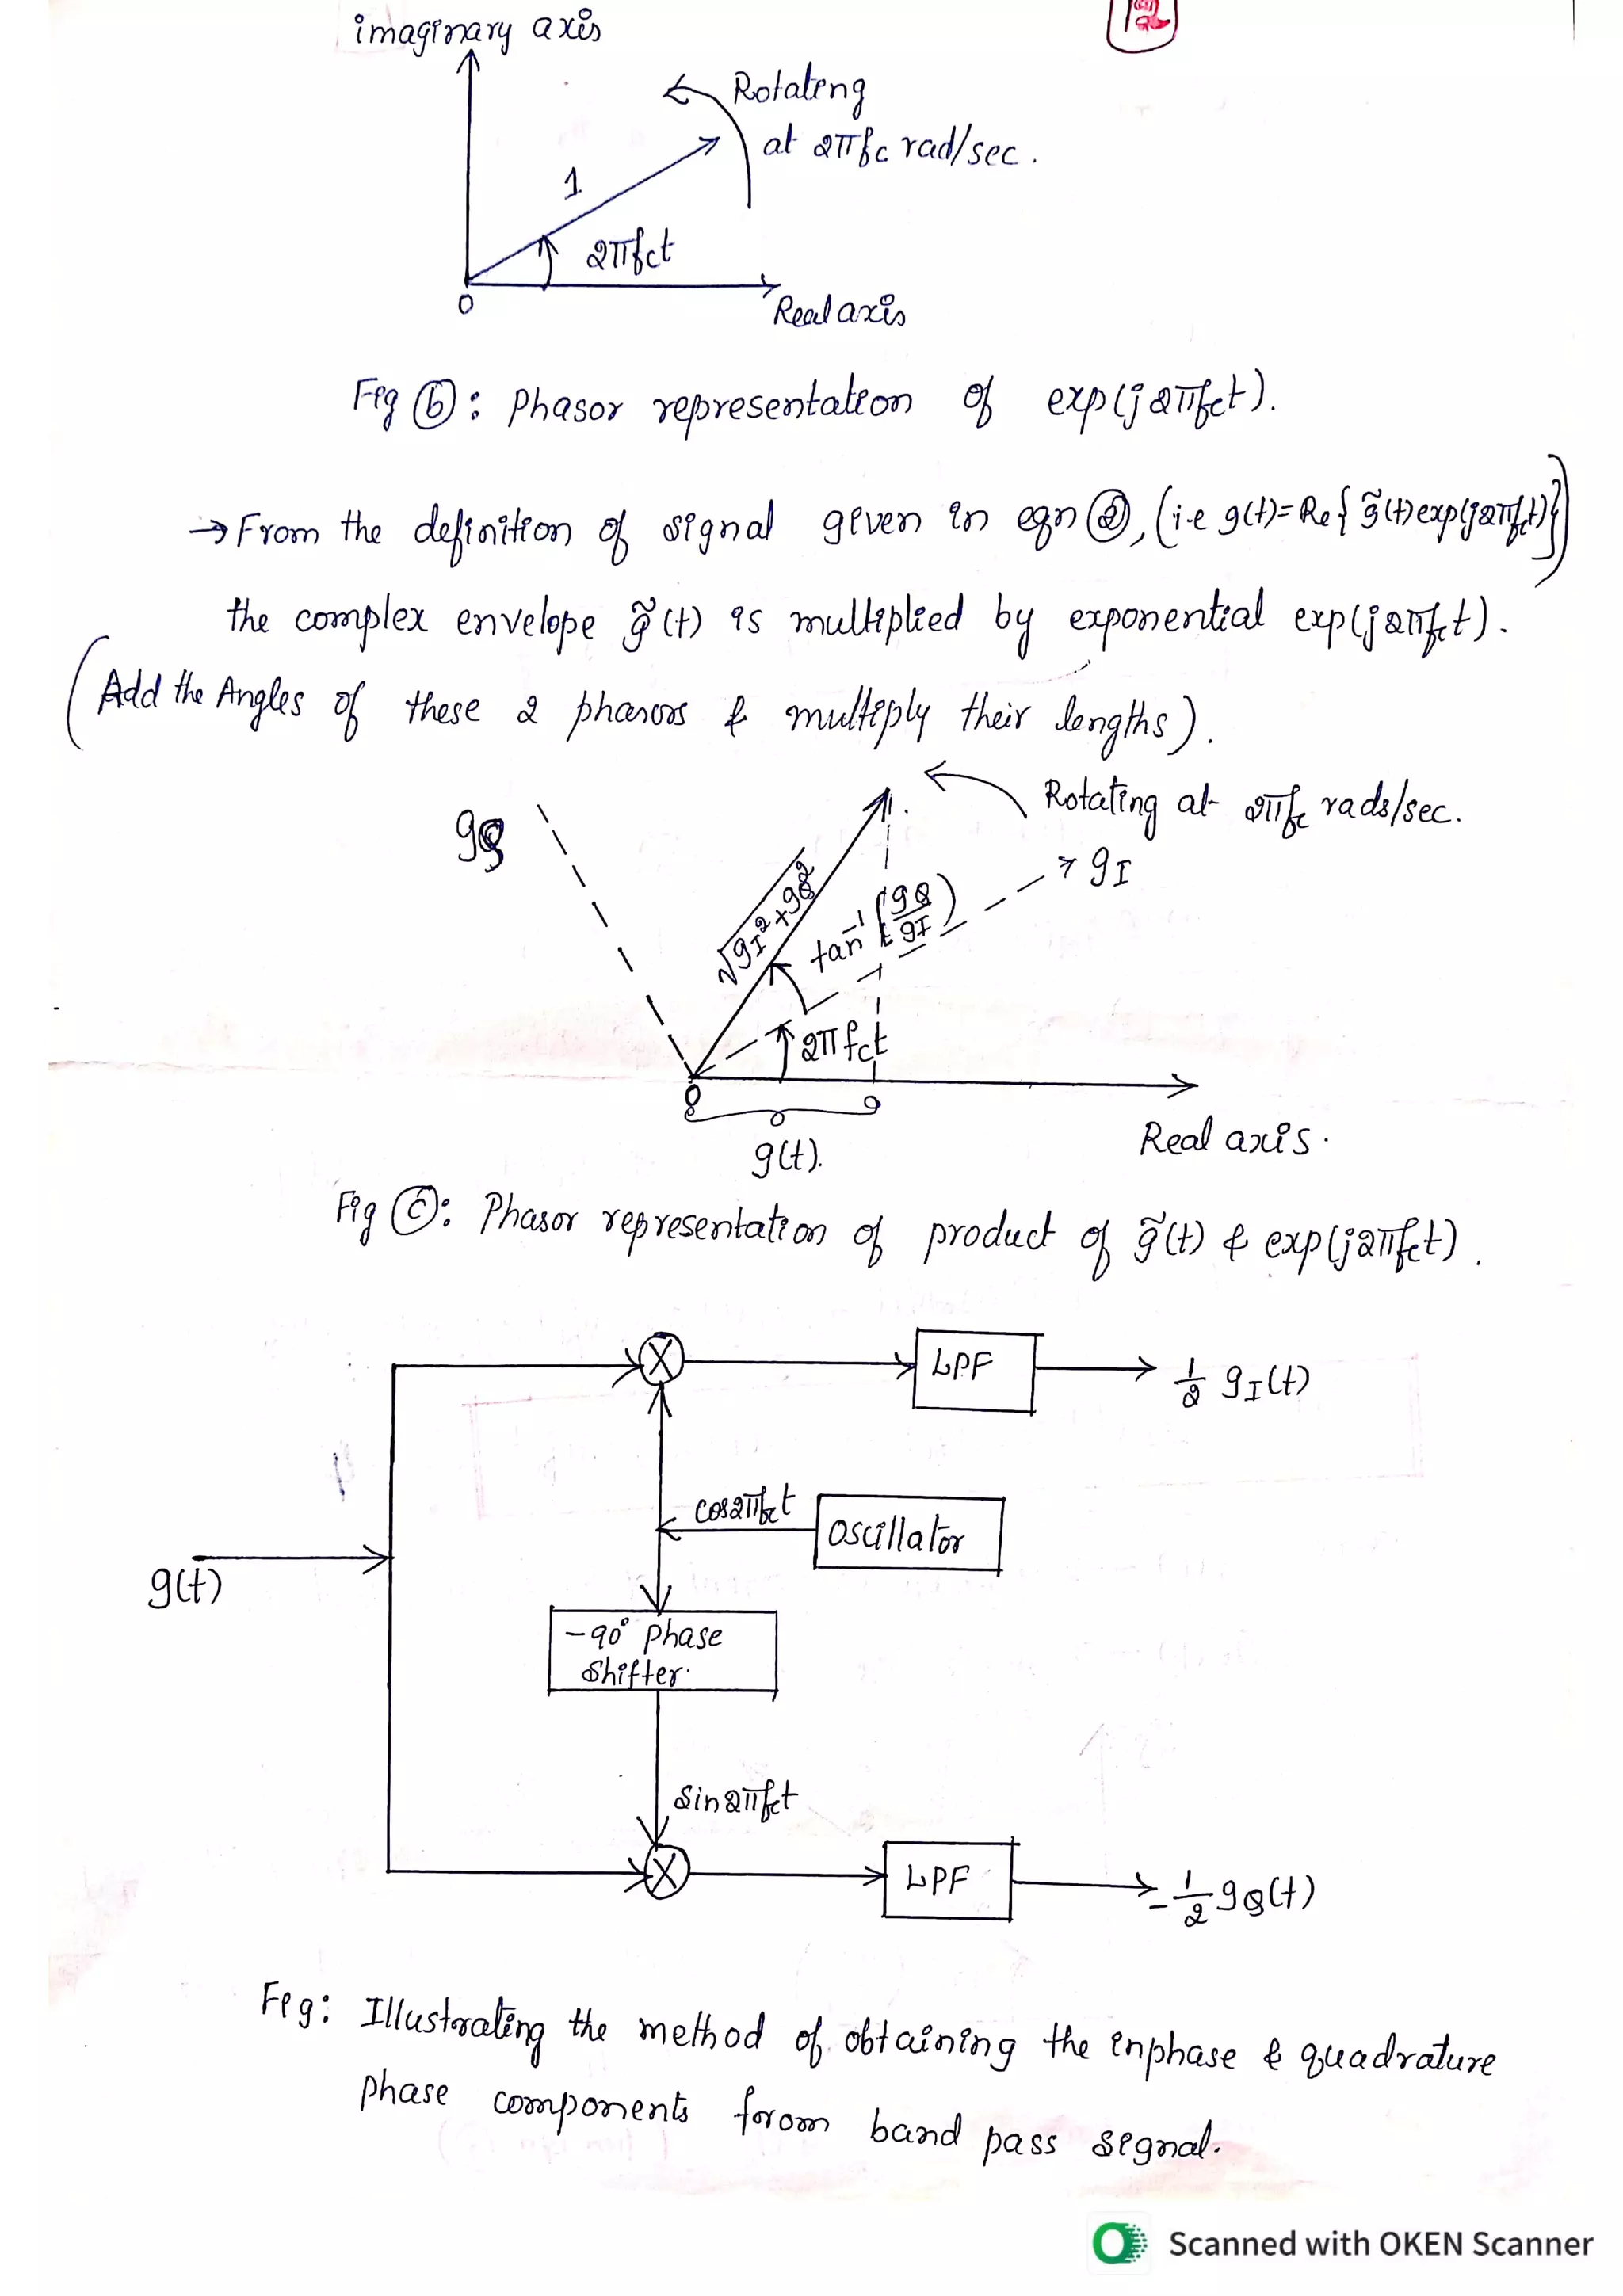 12
imaginary axis
Rotating
at 2πfc rad/sec.
1
2πfct
0
Real axis
Fig ⓑ: Phasor representation of exp(j2πfct).
→ From the definition of signal given in eqn ②, (i.e g(t)= Re{ g̃(t)exp(j2πfct)})
the complex envelope g̃(t) is multiplied by exponential exp(j2πfct).
(Add the Angles of these 2 phasors & multiply their lengths).
Rotating at 2πfc rads/sec.
gQ
gI
√gI²+gQ²
tan⁻¹(gQ/gI)
2πfct
0
g(t).
Real axis.
Fig ⓒ: Phasor representation of product of g̃(t) & exp(j2πfct).
LPF
1/2 gI(t)
cos2πfct
Oscillator
g(t)
-90° Phase
Shifter.
sin2πfct
LPF
-1/2 gQ(t)
Fig: Illustrating the method of obtaining the inphase & quadrature
phase components from band pass signal.
Scanned with OKEN Scanner